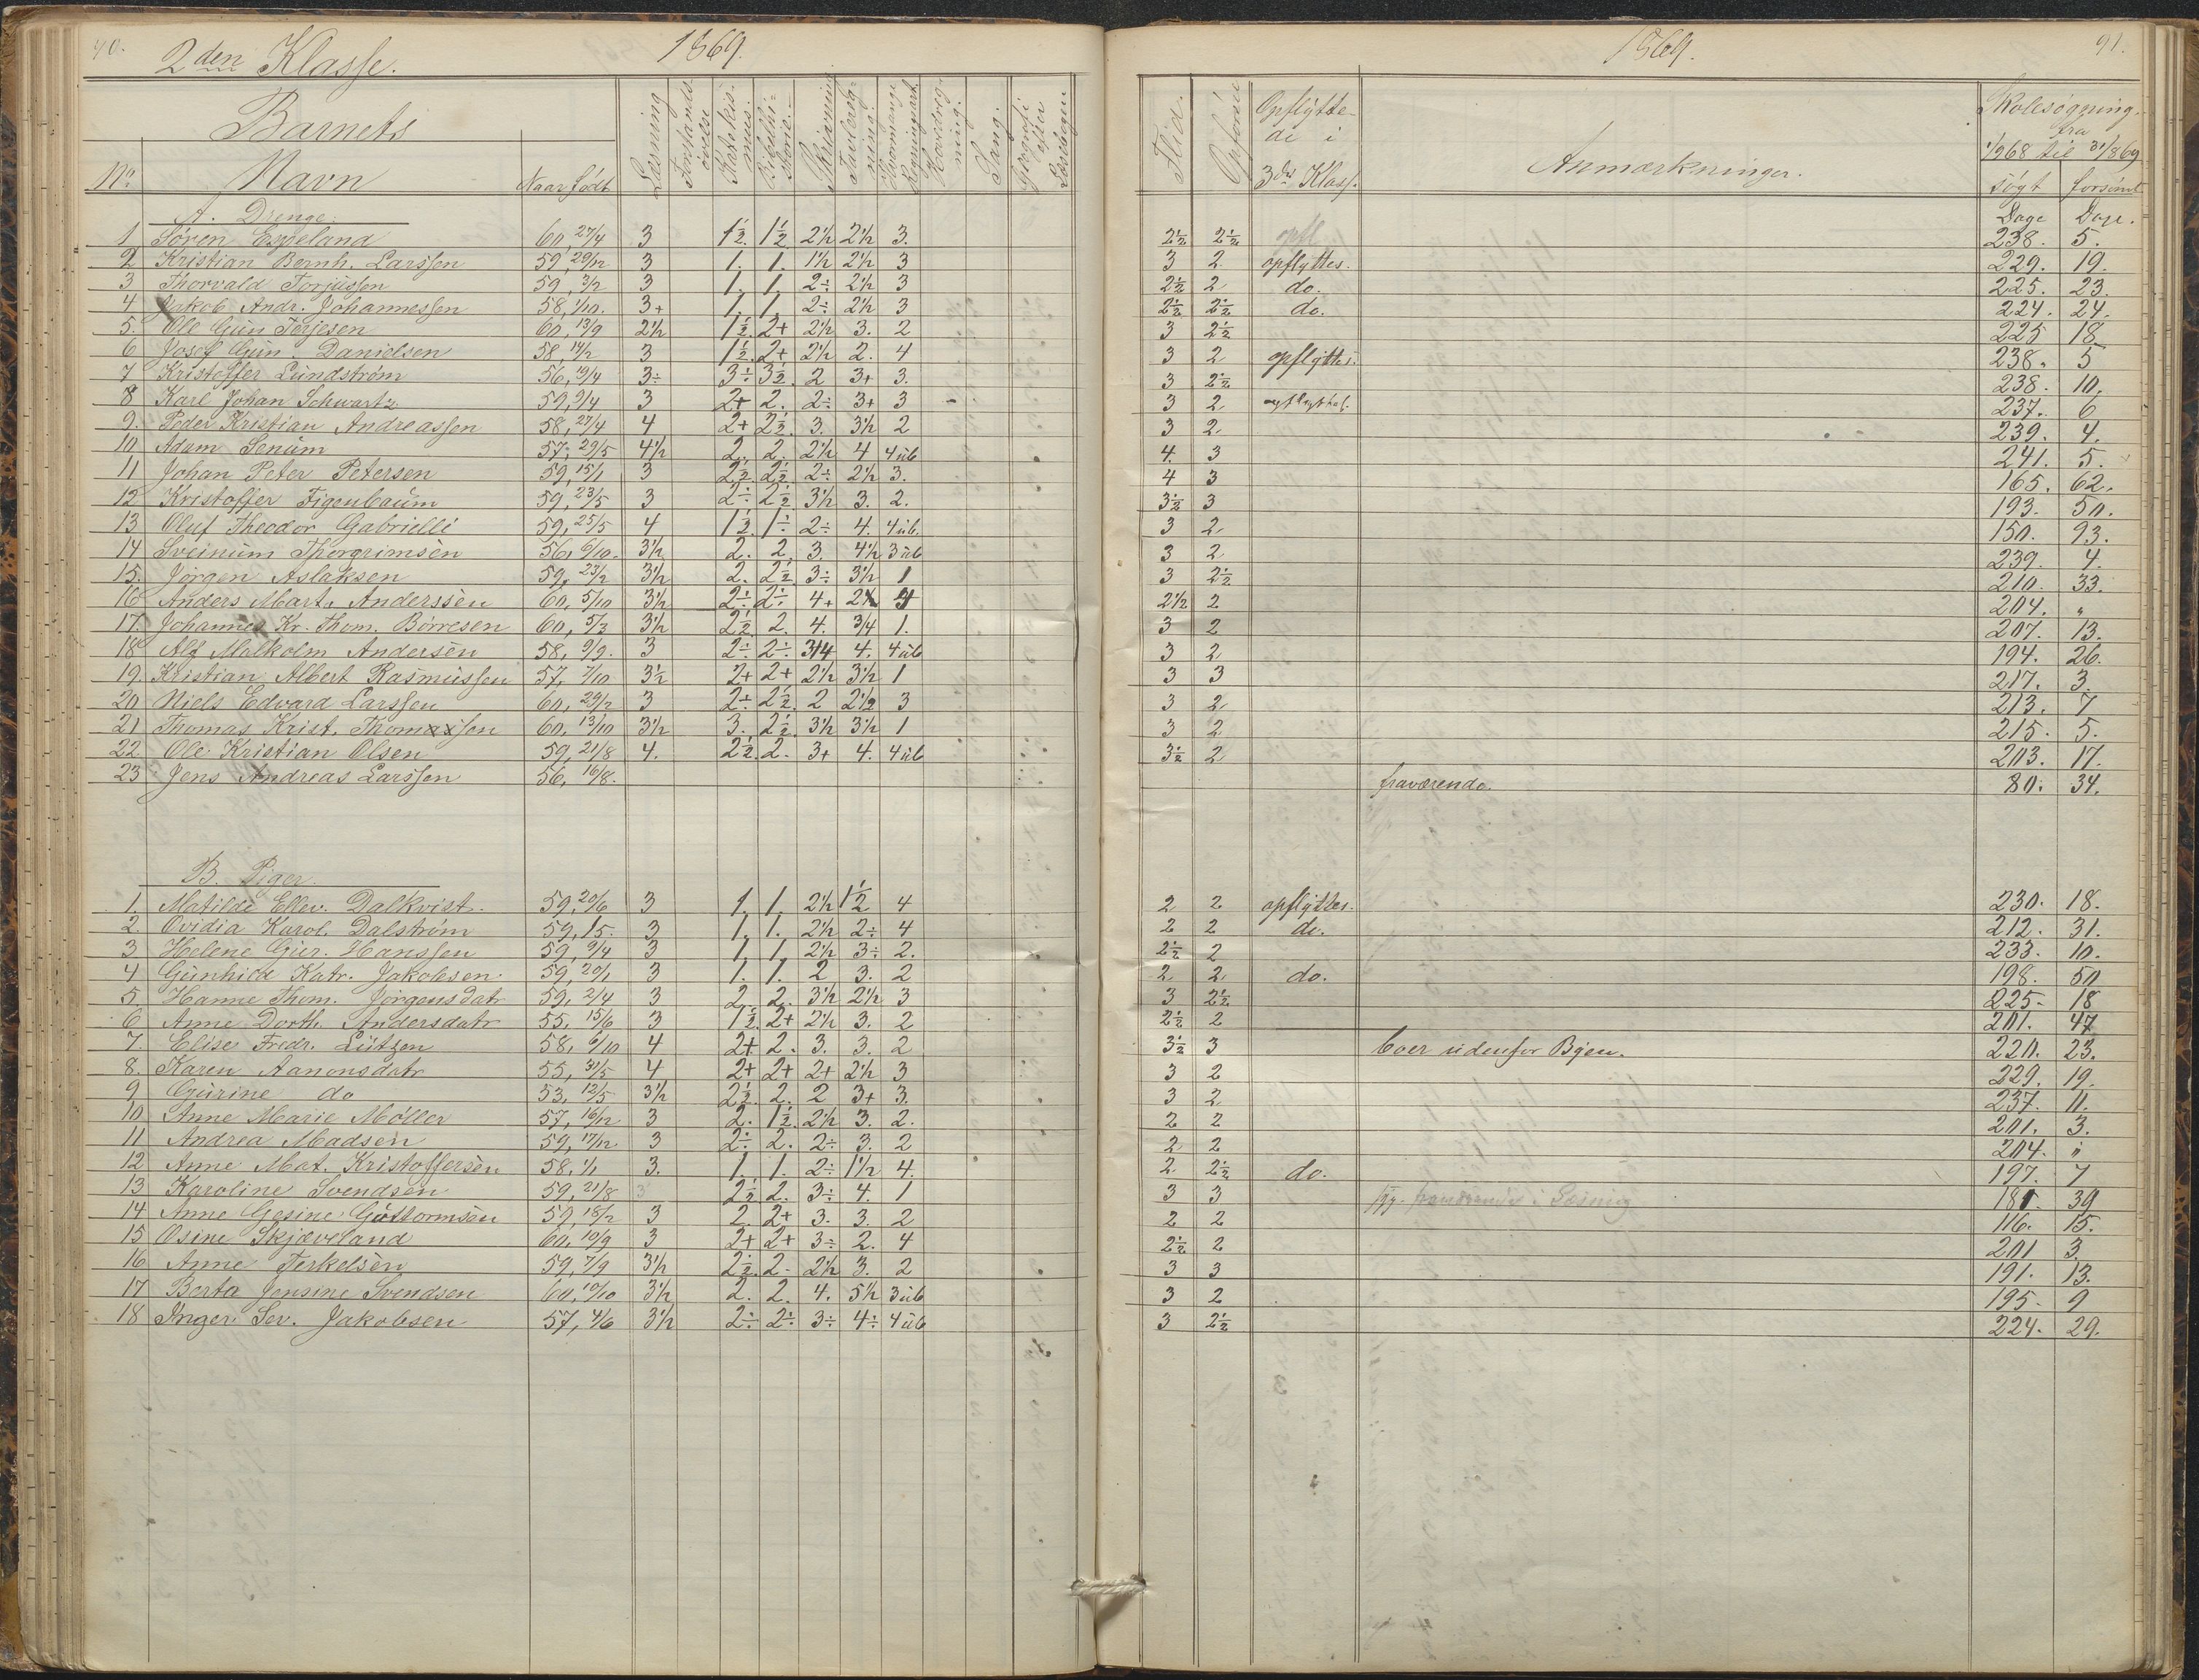 90. 2den Klasse. 1869.
Barnets
No. Navn Naar født Læsning Forstands-øvelse Katekis-mus. Bibelhi-storie. Skrivning Tavlereg-ning. Hvormange Regningsart. Hovedreg-ning. Sang. Geografi efter Læsebogen
A. Drenge.
1 Søren Espeland 60, 27/4 3 1½. 1½ 2½ 2½ 3.
2 Kristian Bernh. Larssen 59, 29/12 3 1. 1. 1½ 2½ 3
3 Thorvald Torjussen 59, 3/2 3 1. 1. 2÷ 2½ 3
4 Jakob Andr. Johannessen 58, 1/10. 3+ 1. 1. 2÷ 2½ 3
5. Ole Gun Terjesen 60, 13/9 2½ 1½. 2+ 2½ 3. 2
6 Josef Gun. Danielsen 58, 14/2 3 1½. 2+ 2½ 2. 4
7 Kristoffer Lundstrøm 56, 19/4 3÷ 3÷ 3½. 2 3+ 3.
8 Karl Johan Schwartz 59, 9/4 3 2+ 2. 2÷ 3+ 3
9. Peder Kristian Andreassen 58, 27/4 4 2+ 2½. 3. 3½ 2
10 Adam Senum 57, 29/5 4½ 2. 2. 2½ 4 4 ub
11 Johan Peter Petersen 59, 15/1 3 2½. 2½. 2÷ 2½ 3.
12 Kristoffer Figenbaum 59, 23/5 3 2÷ 2½ 3½ 3. 2.
13 Oluf Theodor Gabrielli 59, 25/5 4 1½ 1÷. 2÷ 4. 4 ub.
14 Sveinum Thorgrimsen 56, 6/10. 3½ 2. 2. 3. 4½ 3 ub
15. Jørgen Aslaksen 59, 23/2 3½ 2. 2½ 3÷ 3½ 1
16 Anders Mart. Anderssen 60, 5/10 3½ 2÷. 2÷. 4+
17. Johannes Kr. Thom. Børresen 60, 5/3 3½ 2½. 2. 4. 3/4 1.
18 Alf Malkolm Andersen 58, 9/9. 3 2÷. 2÷. 3/4 4. 4 ub
19. Kristian Albert Rasmussen 57, 7/10 3½ 2+ 2+ 2½ 3½ 1
20 Niels Edvard Larssen 60, 29/2 3 2÷ 2½. 2 2½ 3
21 Thomas Krist. Thomassen 60, 13/10 3½ 3. 2½. 3½ 3½ 1
22. Ole Kristian Olsen 59, 21/8 4. 2½. 2. 3+ 4. 4 ub
23 Jens Andreas Larssen 56, 16/8.
B. Piger.
1. Matilde Ellev. Dalkvist. 59, 20/6 3 1. 1. 2½ 1½ 4
2. Ovidia Karol. Dalstrøm 59, 1/5. 3 1. 1. 2½ 2÷ 4
3 Helene Gur. Hanssen 59, 9/4 3 1. 1. 2½ 3÷ 2.
4 Gunhild Katr. Jakobsen. 59, 20/1 3 1. 1. 2 3. 2
5. Hanne Thom. Jørgensdatr 59, 2/4 3 2. 2. 3½ 2½ 3
6 Anne Dorth. Andersdatr 55, 15/6 3 1½. 2+ 2½ 3. 2
7. Elise Fredr. Lützen 58, 6/10 4 2+ 2. 3. 3. 2
8. Karen Aanonsdatr 55, 31/5 4 2+ 2+ 2+ 2½ 3
9 Gurine do 53, 12/5 3½ 2½. 2. 2 3+ 3.
10 Anne Marie Møller 57, 16/12 3 2. 1½. 2½ 3. 2.
11 Andrea Madsen 59, 17/12. 3 2÷. 2. 2÷ 3. 2
12 Anne Mat. Kristoffersen 58, 1/1 3. 1. 1. 2÷ 1½ 4.
13 Karoline Svendsen 59, 21/8 3 2½ 2. 3÷ 4. 1
14 Anne Gesine Guttormsen 59, 18/2 3 2. 2+ 3. 3. 2
15 Osine Skjæveland 60, 10/9 3 2+ 2+ 3÷ 2. 4
16 Anne Terkelsen 59, 7/9 3½ 2½. 2. 2½ 3. 2
17 Berta Jensine Svendsen 60, 10/10 3½ 2. 2. 4. 5½ 3 ub
18 Inger Sev. Jakobsen 57, 4/6 3½ 2÷ 2÷ 3÷ 4÷ 4 ub
1869. 91.
Flid. Opførsel Opflytte-de i 3die Klass. Anmærkninger. Skolesøgning. fra 1/9 68 til 31/8 69
søgt forsømt
Dage Dage.
2½ 2½ opfl. 238. 5.
3 2 opflyttes. 229. 19.
2½ 2 do. 225. 23.
2½ 2½ do. 224. 24.
3 2½ 225 18
3 2 opflyttes. 238. 5
3 2½ 238. 10.
3 2 opflyttes. 237. 6
3 2 239. 4.
4. 3 241. 5.
4 3 165. 62.
3½ 3 193. 50.
3 2 150. 93.
3 2 239. 4.
3 2½ 210. 33.
2½ 2 204. "
3 2 207. 13.
3 2 194. 26.
3 3 217. 3.
3 2 213. 7
3 2 215. 5.
3½ 2 203. 17.
fraværende. 80. 34.
2 2 opflyttes. 230. 18.
2 2 do. 212. 31.
2½ 2 233. 10.
2 2 do. 198. 50
3 2½ 225. 18
2½ 2 201. 47
3½ 3 boer udenfor Byen. 220. 23.
3 2 229. 19.
3 2 237. 11.
2 2 201. 3.
2 2 204. "
2 2½ do. 197. 7
3 3 39
2 2 116. 15.
2½ 2 201 3.
3 3 191. 13.
3 2 195. 9
3 2½ 224. 29.